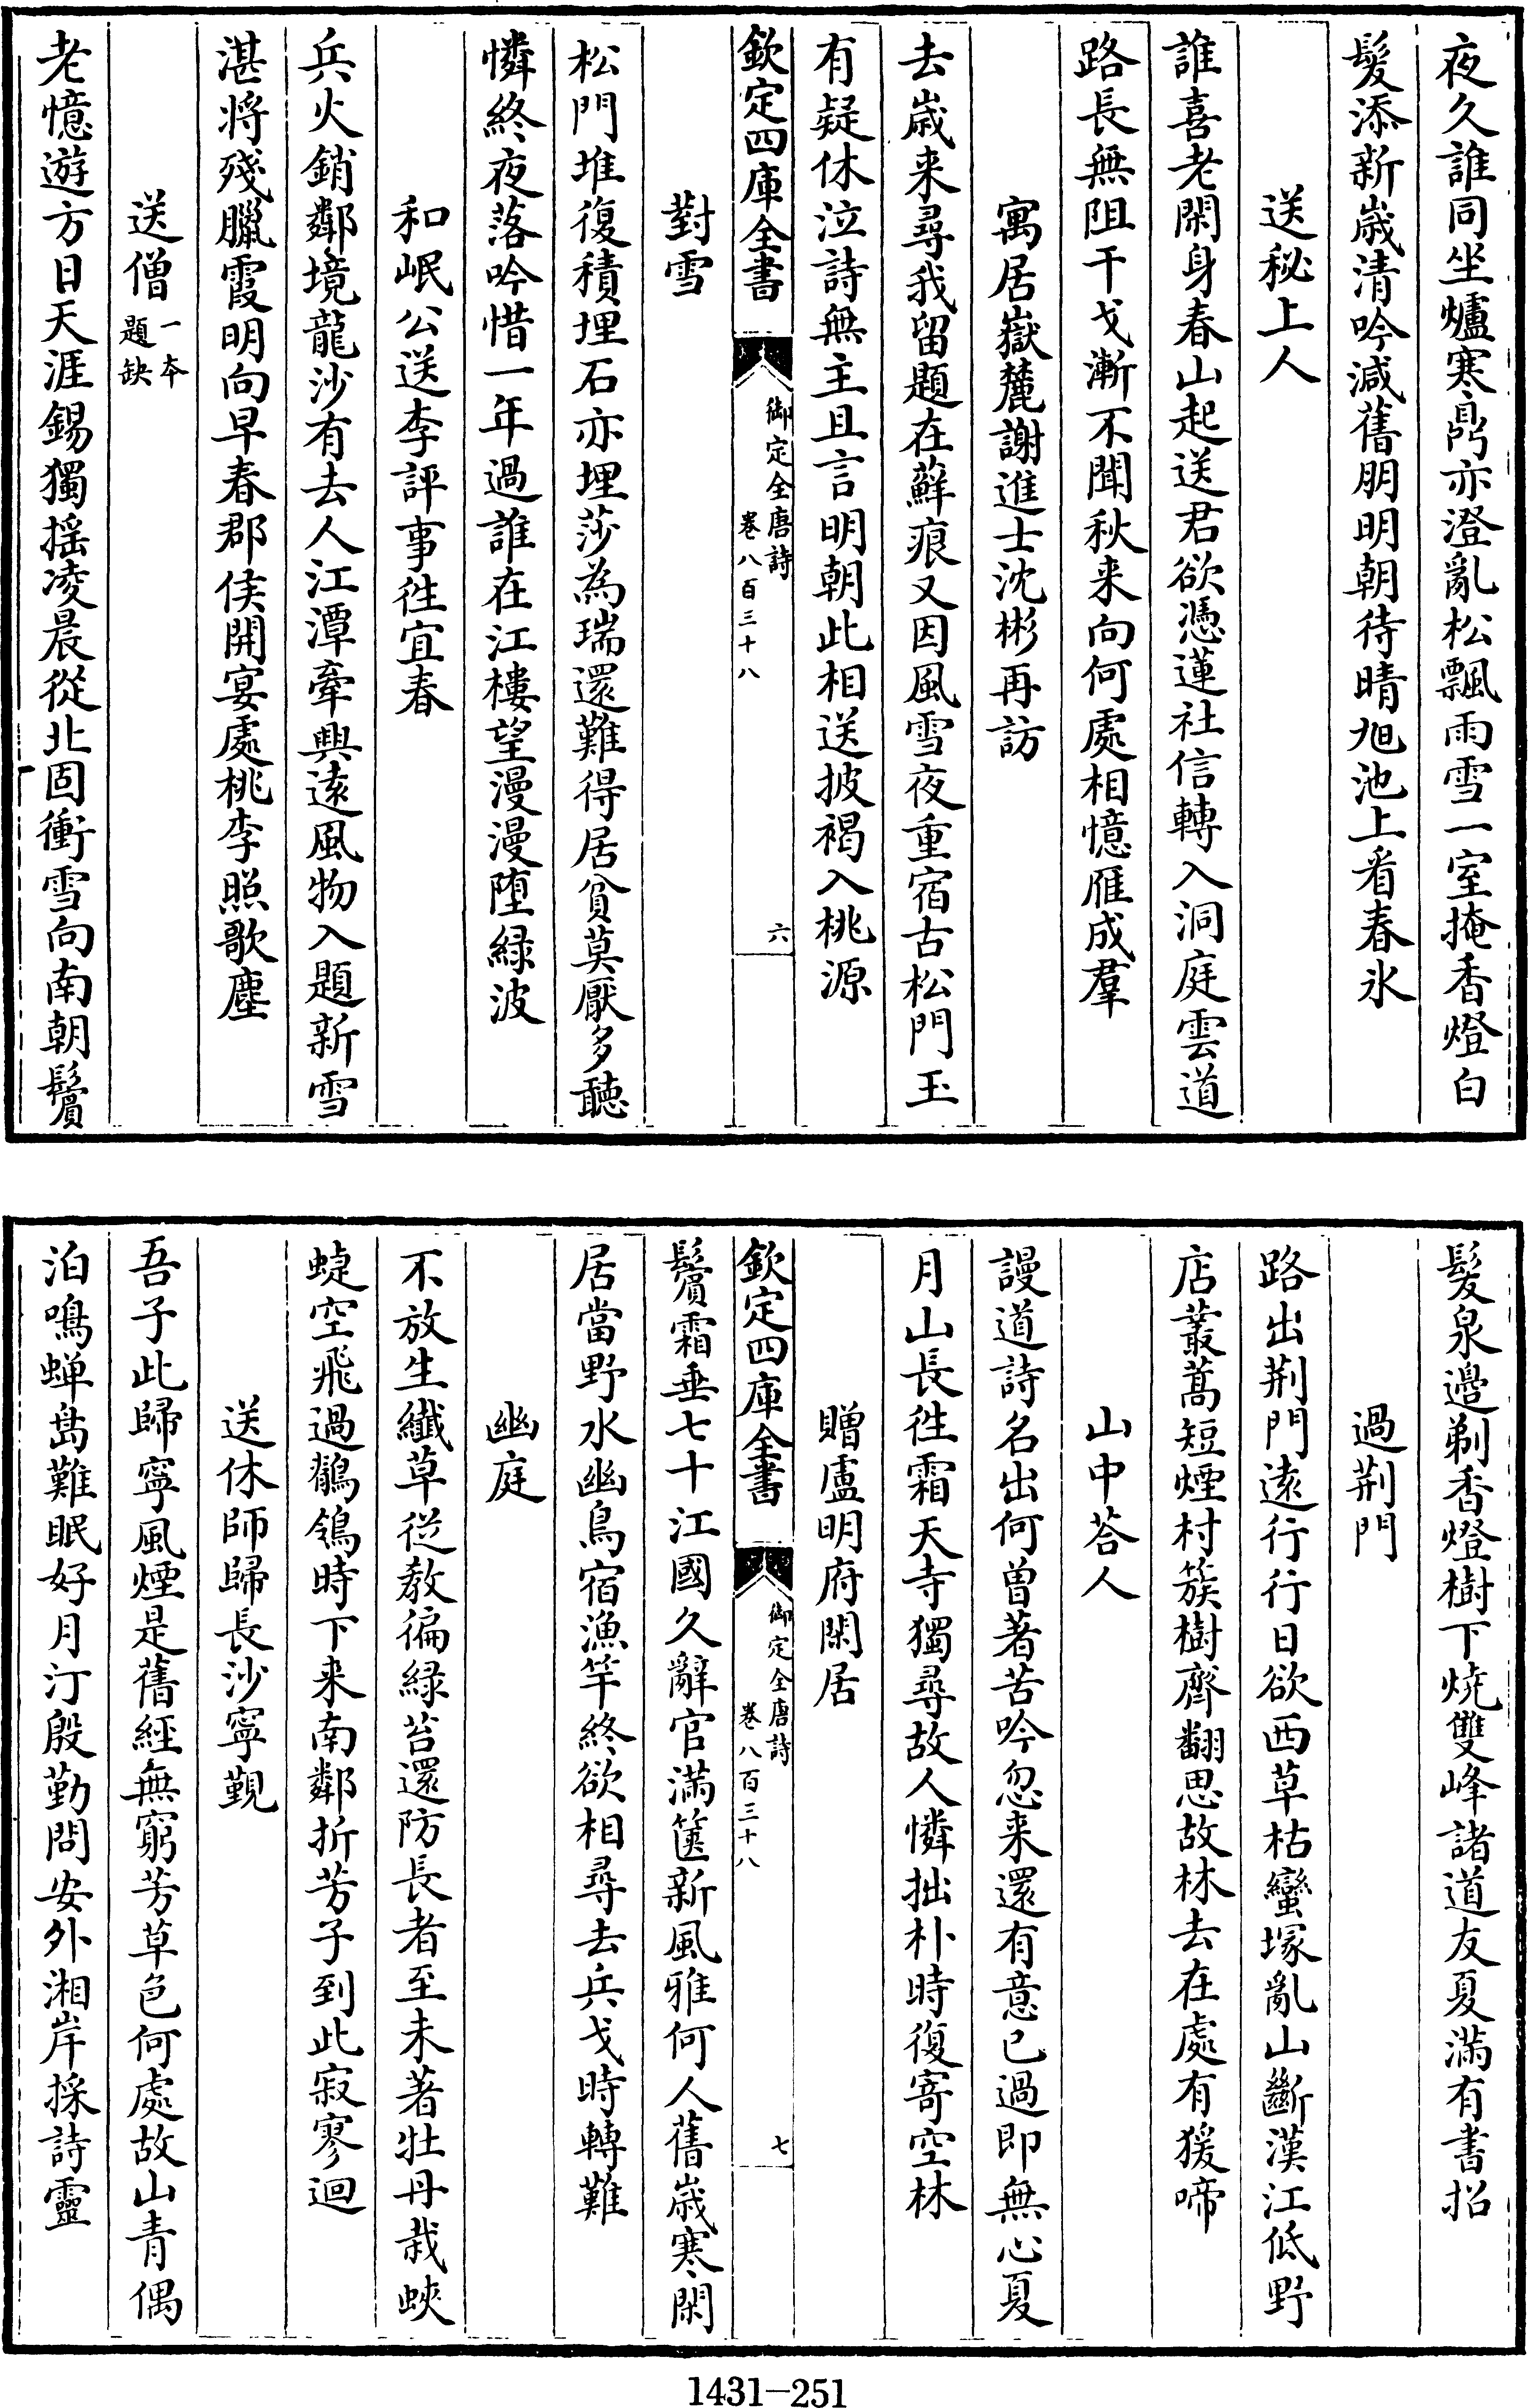 夜久誰同坐爐寒鼎亦澄亂松飄雨雪一室掩香燈白
髮添新歲清吟減舊朋明朝待晴旭池上看春氷
送秘上人
誰喜老閑身春山起送君欲憑蓮社信轉入洞庭雲道
路長無阻干戈漸不聞秋来向何處相憶雁成羣
寓居嶽麓謝進士沈彬再訪
去歲来尋我留題在蘚痕又因風雪夜重宿古松門玉
有疑休泣詩無主且言明朝此相送披褐入桃源
欽定四庫全書
御定全唐詩
卷八百三十八
六
對雪
松門堆復積埋石亦埋莎為瑞還難得居貧莫厭多聽
憐終夜落吟惜一年過誰在江樓望漫漫墮緑波
和岷公送李評事往宜春
兵火銷鄰境龍沙有去人江潭牽興遠風物入題新雪
湛將殘臘霞明向早春郡侯開宴處桃李照歌塵
送僧
一本
題缺
老憶遊方日天涯錫獨搖凌晨從北固衝雪向南朝鬢
髮泉邊剃香燈樹下焼雙峰諸道友夏滿有書招
過荆門
路出荆門遠行行日欲西草枯蠻塚亂山斷漢江低野
店叢蒿短煙村簇樹齊翻思故林去在處有猨啼
山中荅人
謾道詩名出何曽著苦吟忽来還有意已過即無心夏
月山長往霜天寺獨尋故人憐拙朴時復寄空林
贈盧明府閑居
欽定四庫全書
御定全唐詩
卷八百三十八
七
鬢霜垂七十江國久辭官滿篋新風雅何人舊歲寒閑
居當野水幽鳥宿漁竿終欲相尋去兵戈時轉難
幽庭
不放生纎草從教徧緑苔還防長者至未著牡丹栽蛺
蜨空飛過鶺鴒時下来南鄰折芳子到此寂寥迴
送休師歸長沙寧覲
吾子此歸寧風煙是舊經無窮芳草色何處故山青偶
泊鳴蟬島難眠好月汀殷勤問安外湘岸採詩靈
1431-251